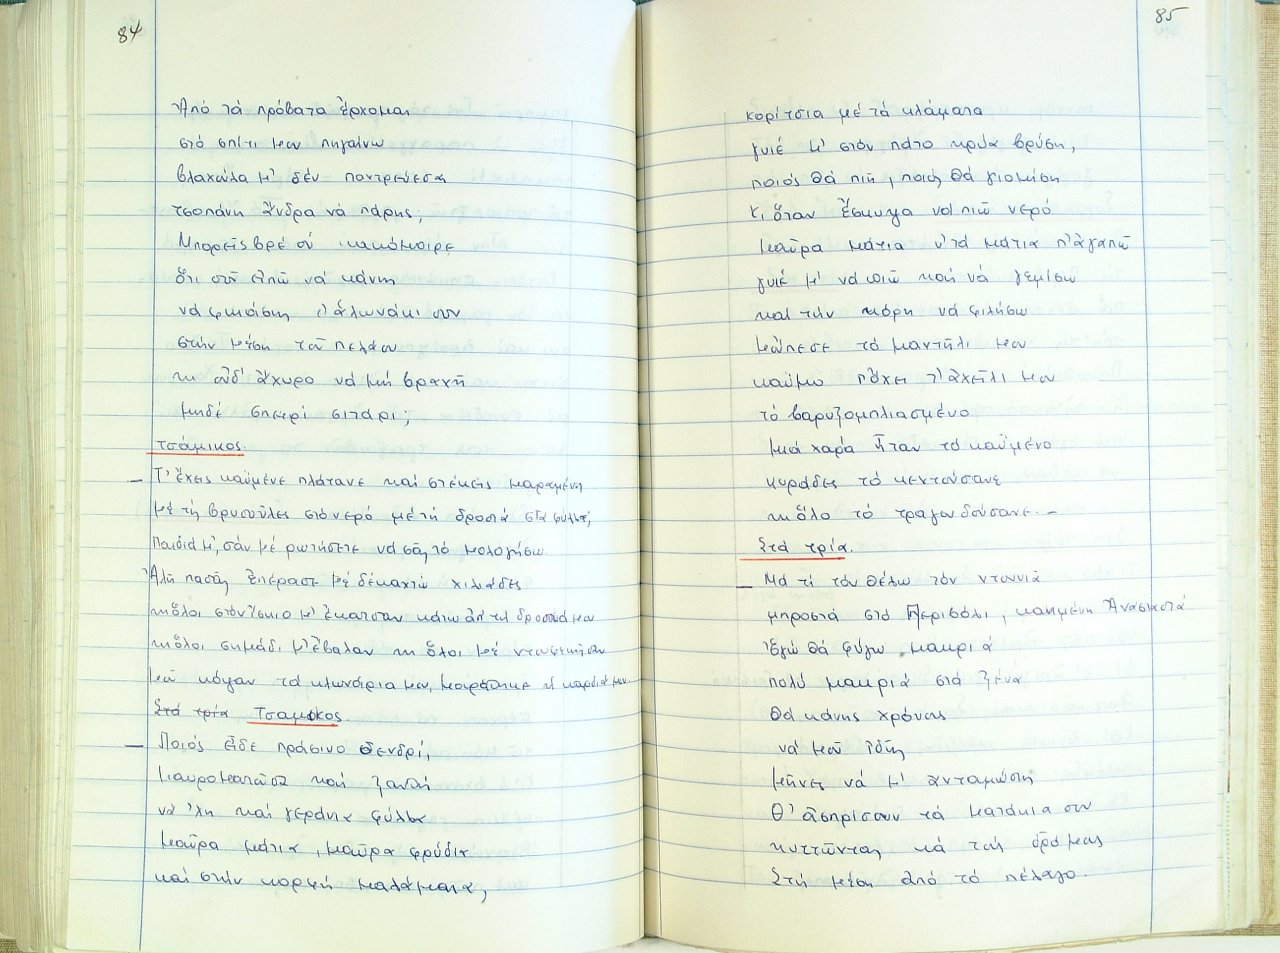 84
Ἀπό τά πρόβατα ἔρχομαι
στό σπίτι μου πηγαίνω
βλαχούλα μ' δέν παντρεύεσαι
τσοπάνη ἄνδρα νά πάρης;
Μπορεῖς βρέ σύ κακόμοιρε
ὅτι σοῦ εἰπῶ νά κάνης
νά φκιάσης τ' ἁλωνάκι σου
στήν μέση τοῦ πελάου
κι οὐδ' ἄχυρο νά μή βραχῆ
μηδέ σπειρί σιτάρι;
Τσάμικος.
Τ' ἔχεις καϋμένε πλάτανε καί στέκεις μαραμένος
μέ τή βρυσοῦλες στό νερό μέ τή δροσιά στά φύλλα;
Παιδιά μ', σάν μέ ρωτήσετε νά σᾶς τό μολογήσω
Ἀλῆ πασᾶς ἐπέρασε μέ δέκαχτώ χιλιάδες
κι ὅλοι στόν ἴσκιο μ' ἔκατσαν κάτω ἀπ' τή δροσιά μου
κι ὅλοι σημάδι μ' ἔβαλαν κι ὅλοι μέ
μοῦ κόψαν τά κλωνάρια μου, μαράθηκε ἡ καρδιά μου.
Στά τρία Τσαμικος.
Ποιός εἶδε πράσινο δενδρί,
μαυροματοῦσα καί ξανθή
νά 'χη καί γεράνια φύλλα
μαῦρα μάτια, μαῦρα φρύδια
καί στήν κορφή μαλάματα,
85
κορίτσια μέ τά κλάματα
γυιέ μ' στόν πάτο κρύα βρύση,
ποιός θά πιῆ, ποιός θά γιομίση
κι ὅταν ἔσκυψα νά πιῶ νερό
μαῦρα μάτια ν' τά μάτια π' ἀγαπῶ
γυιέ μ' νά πιῶ καί νά γεμίσω
καί τήν κόρη νά φιλήσω
μὤπεσε τό μαντήλι μου
καϋμό πὄχει τ' ἀχεῖλι μου
τό βαρυξομπλιασμένο
μιά χαρά ἦταν τό καϋμένο
κυράδες τό κεντούσανε
κι ὅλο τό τραγουδούσανε.-
Στά τρία.
Μά τί τόν θέλω τόν ντουνιᾶ
μπροστά στό Περιβόλι, καημένη Ἀναστασιά
Ἐγώ θά φύγω μακριά
πολύ μακριά στά ξένα
Θά κάνης χρόνους
νά μοῦ ἰδῆς
μῆνες νά μ' ἀνταμώση
Θ' ἀσπρίσουν τά ματάκια σου
κυττῶντας κά τούς δρόμους
Στή μέση ἀπό τό πέλαγο.